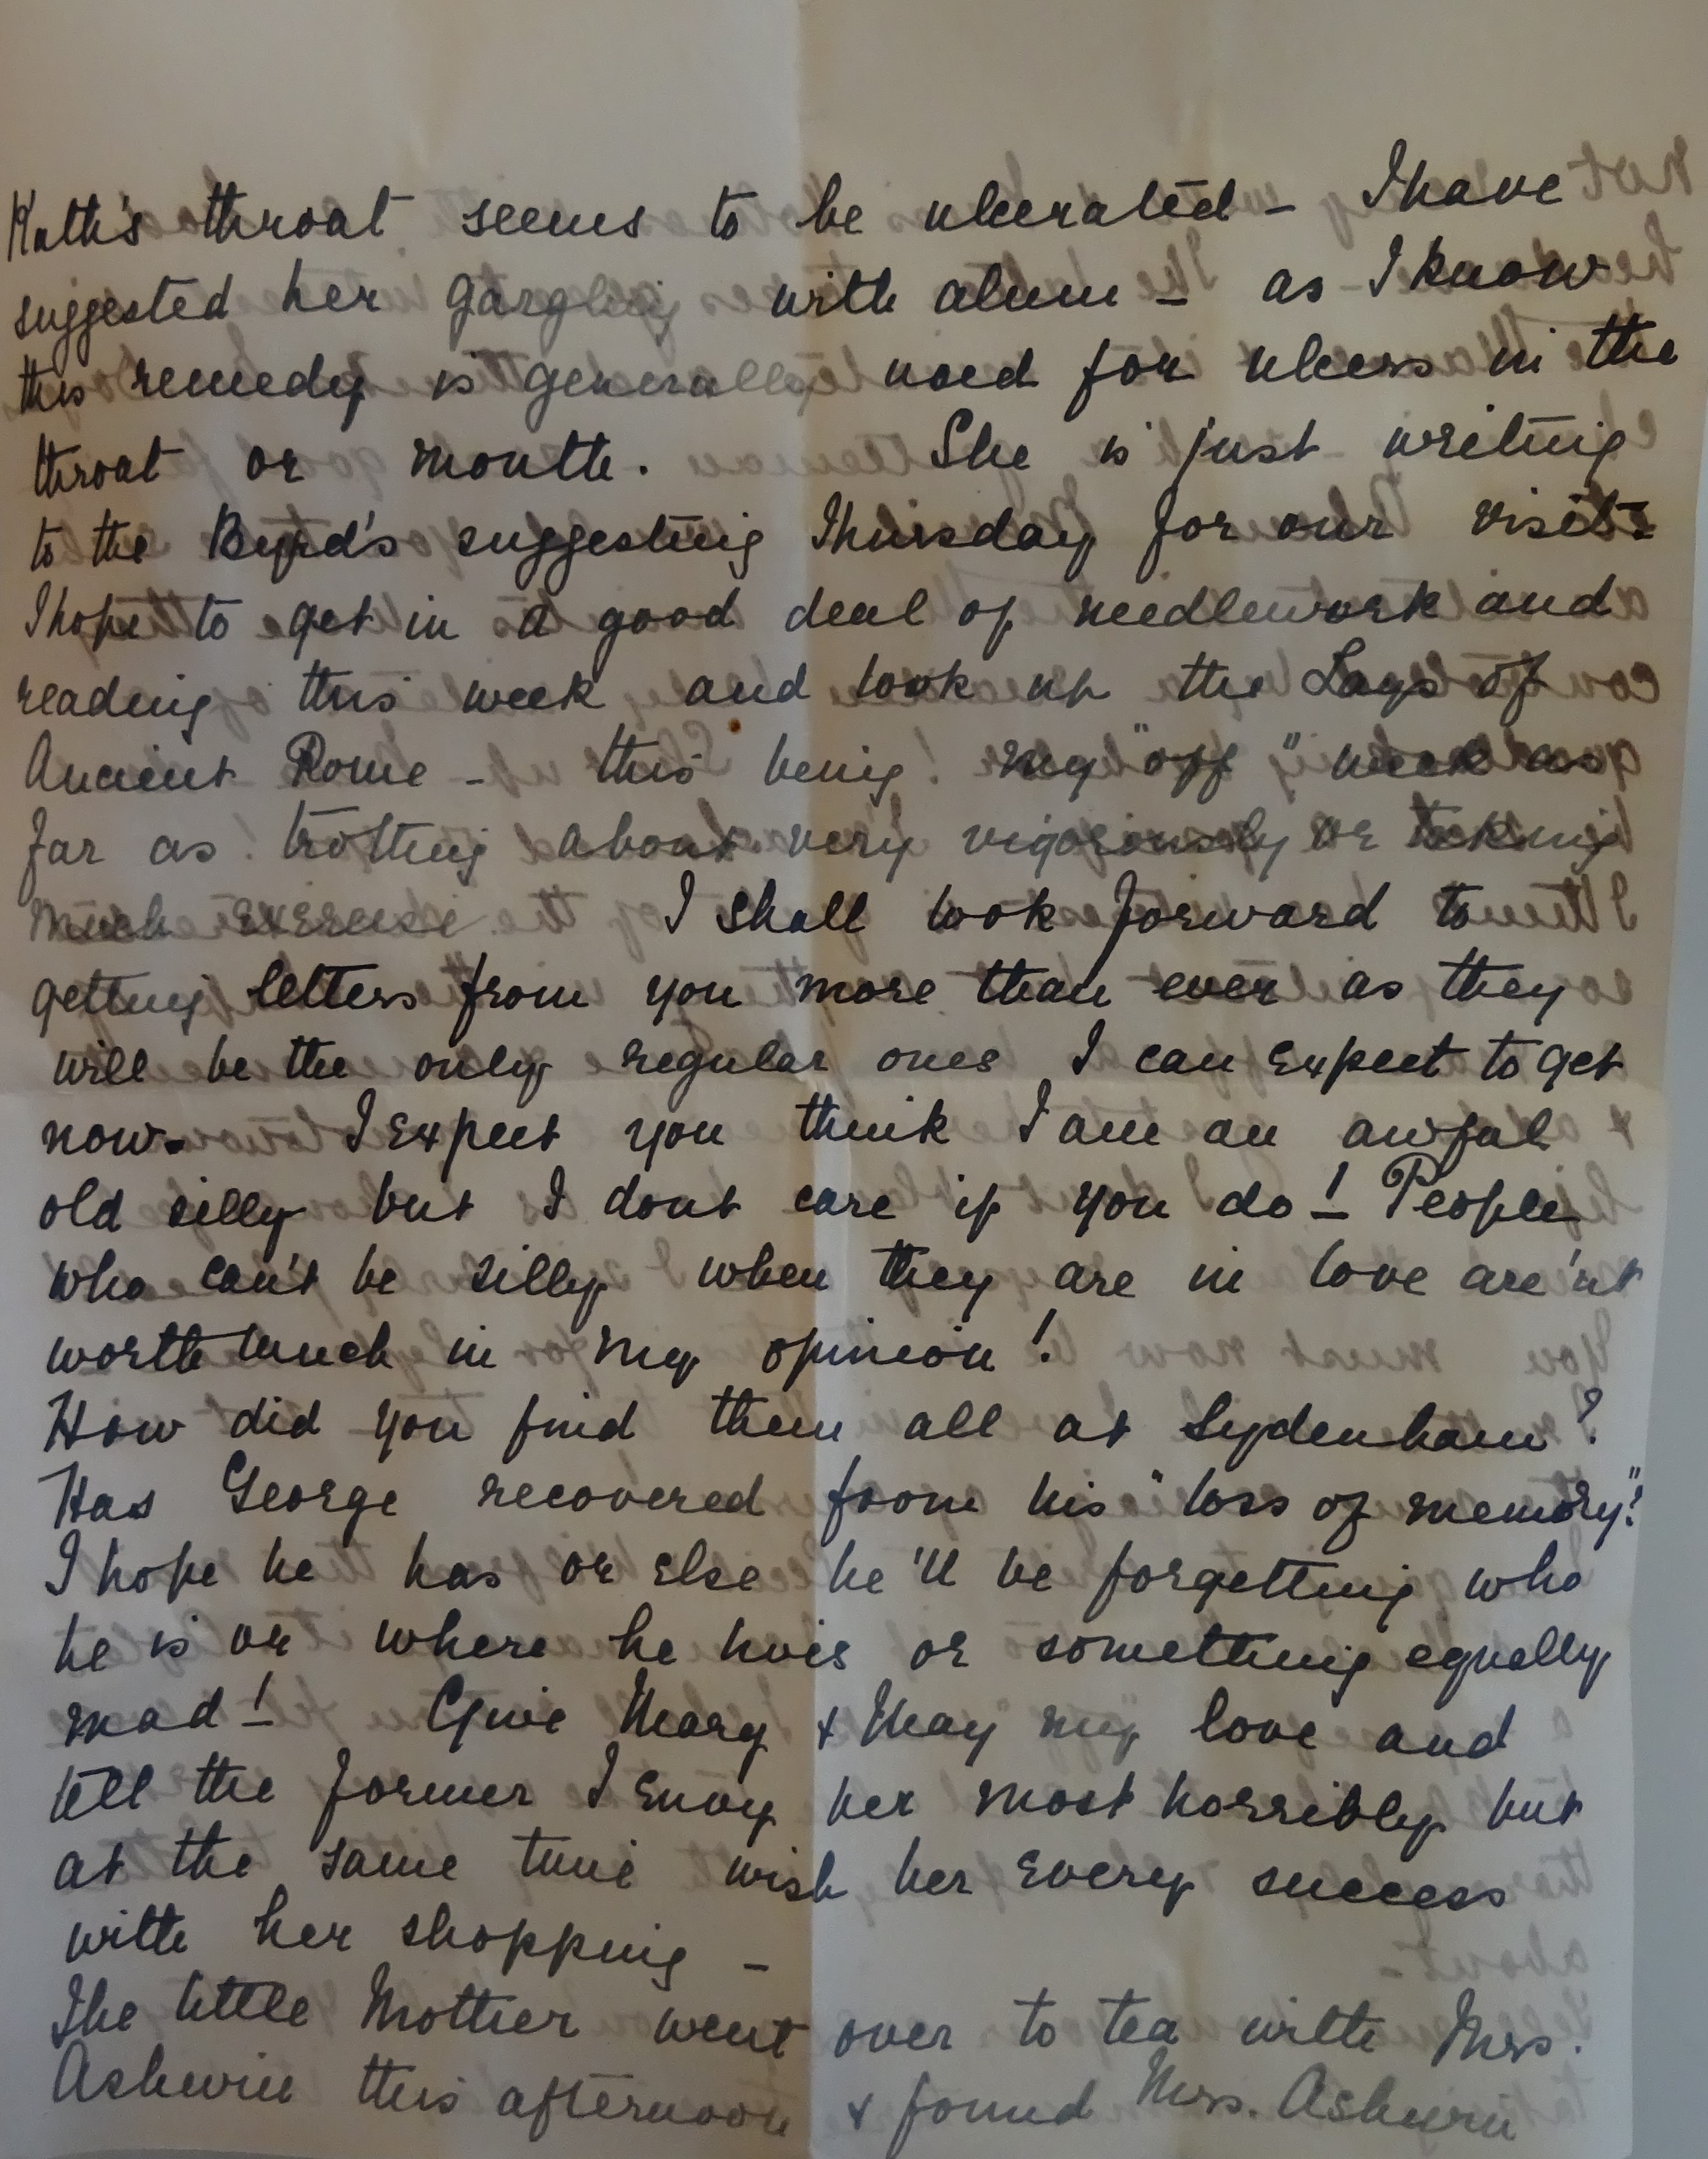 Kath's throat seems to be ulcerated - I have
suggested her gargling with alum - as I know
this remedy is generally used for ulcers in the
throat or mouth. She is just writing
to the Byrd's suggesting Thursday for our visit.
I hope to get in a good deal of needlework and
reading this week and look up the Lays of
Ancient Rome - this being my "off" week as
far as trotting about very vigorously or taking
much exercise. I shall look forward to
getting letters from you more than ever as they
will be the only regular ones I can expect to get
now. I expect you think I am an awful
old silly but I dont care if you do! People
who can't be silly when they are in love are'nt
worth much in my opinion!
How did you find them all at Sydenham?
Has George recovered from his "loss of memory"?
I hope he has or else he'll be forgetting who
he is or where he lives or something equally
mad! Give Marg & May my love and
tell the former I envy her most horribly but
at the same time wish her every success
with her shopping -
The little Mother went over to tea with Mrs.
Ashwin this afternoon & found Mrs. Ashwin